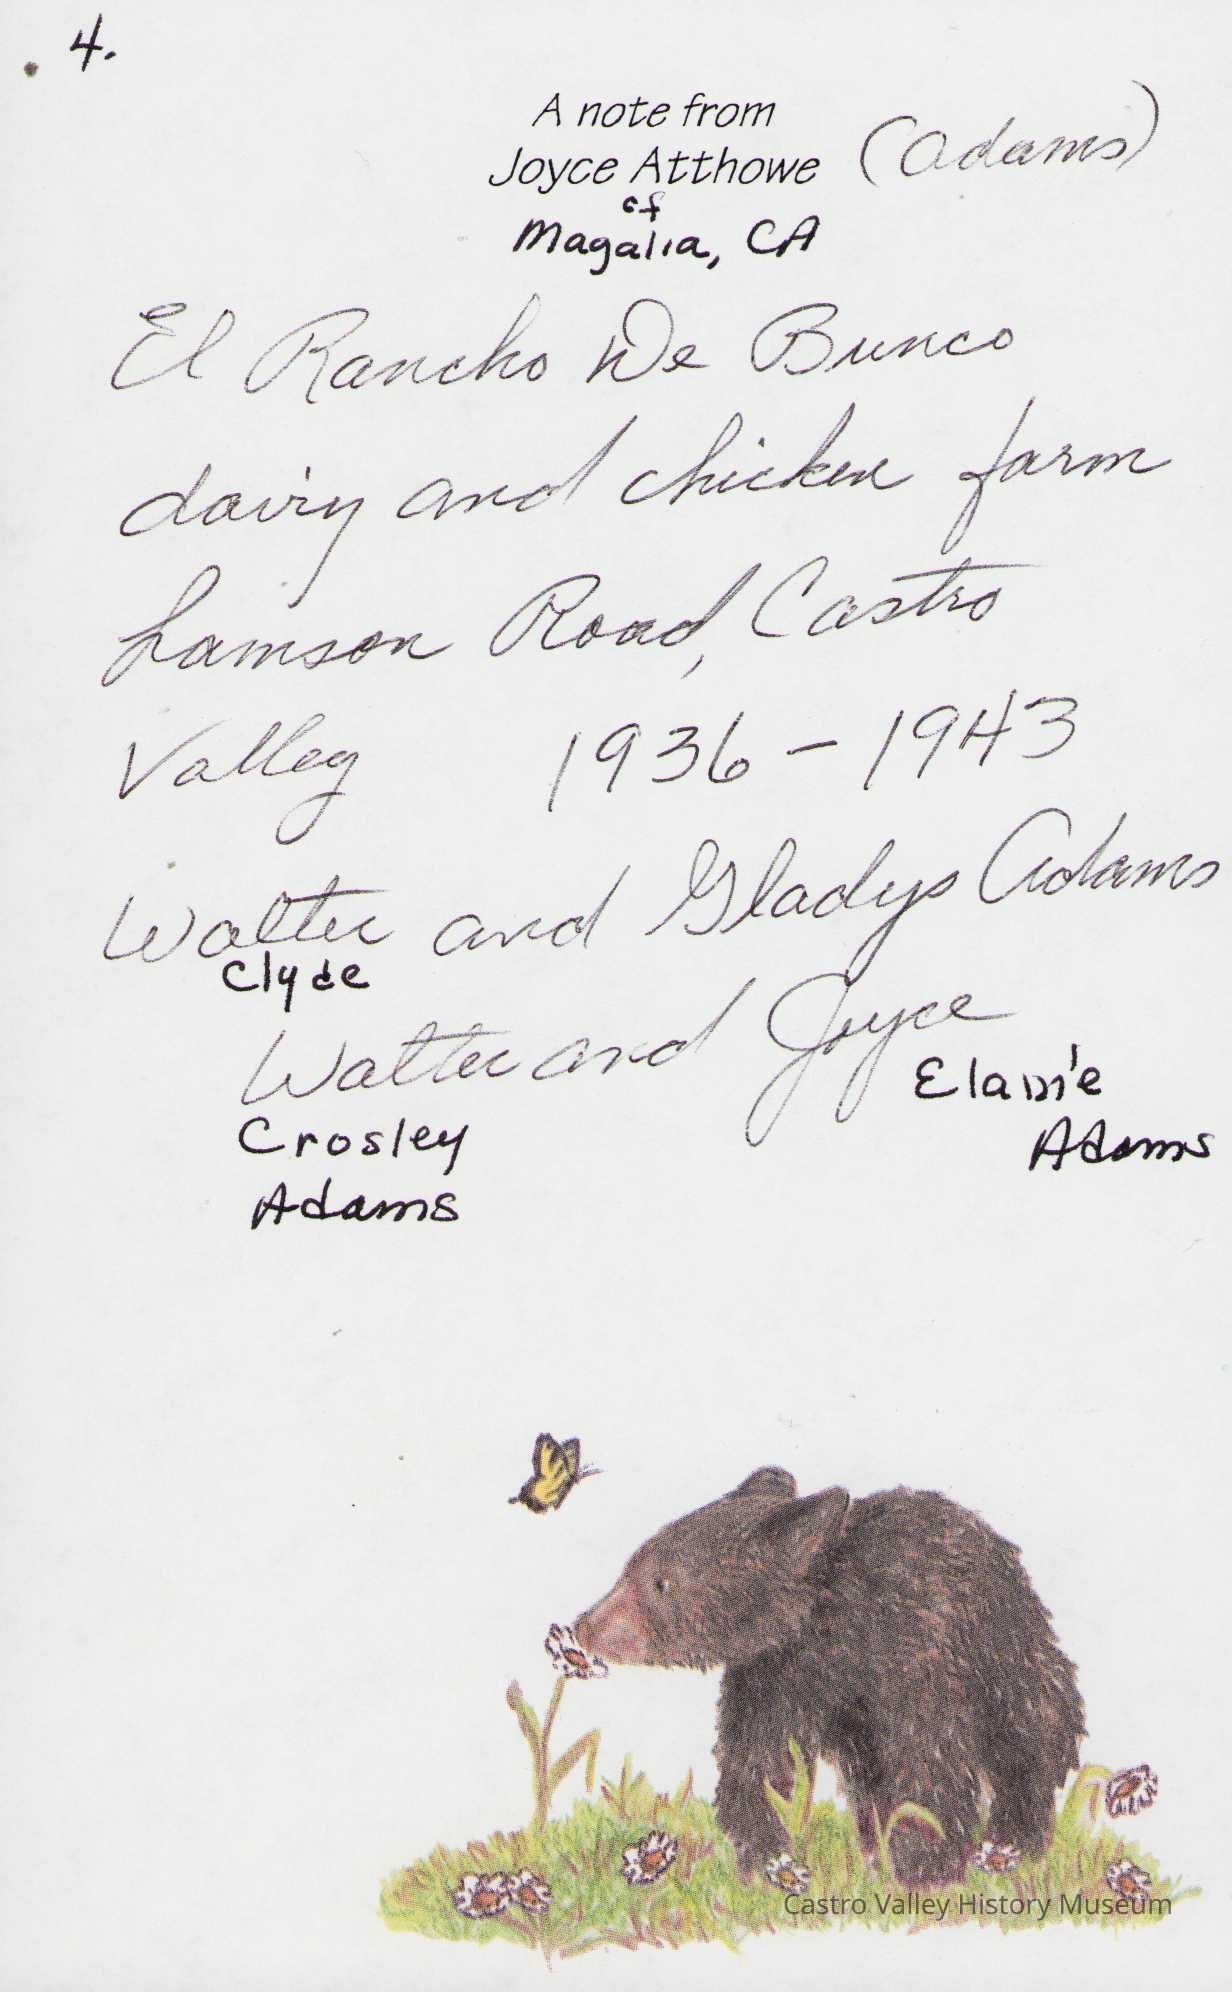 4.
A note from
Joyce Atthowe (Adams)
of
Magalia, CA
El Rancho De Bunco
dairy and chicken farm
Lamson Road, Castro
Valley 1936 - 1943
Walter and Gladys Adams
Clyde
Walter and Joyce
Elanie
Crosley
Adams
Adams
Castro Valley History Museum